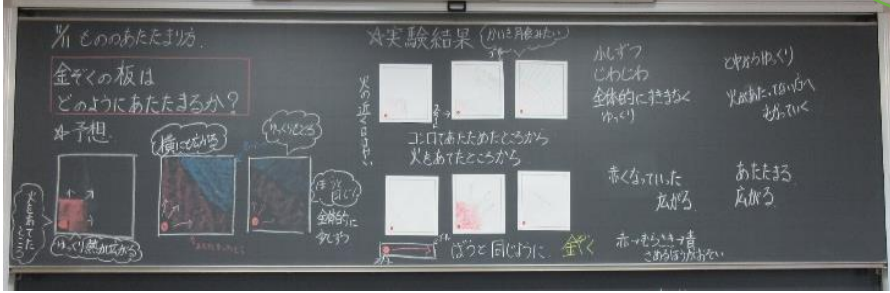 11/11 もののあたたまり方.
金ぞくの板は
どのようにあたたまるか?
☆予想.
火をあてた
ところ
ゆっくり熱が広がる
横にも広がる
ゆっくりもどる
全体的に
少しずつ
☆実験結果
火の近くははやい
コンロであたためたところから
火をあてたところから
ぼうと同じように. 金ぞく
小しずつ
じわじわ
全体的にすきまなく
ゆっくり
とかゆっくり
火があたってない方へ
赤くなっていった
広がる
あたたまる
広がる
赤→むらさき→青
さめるほうがおそい